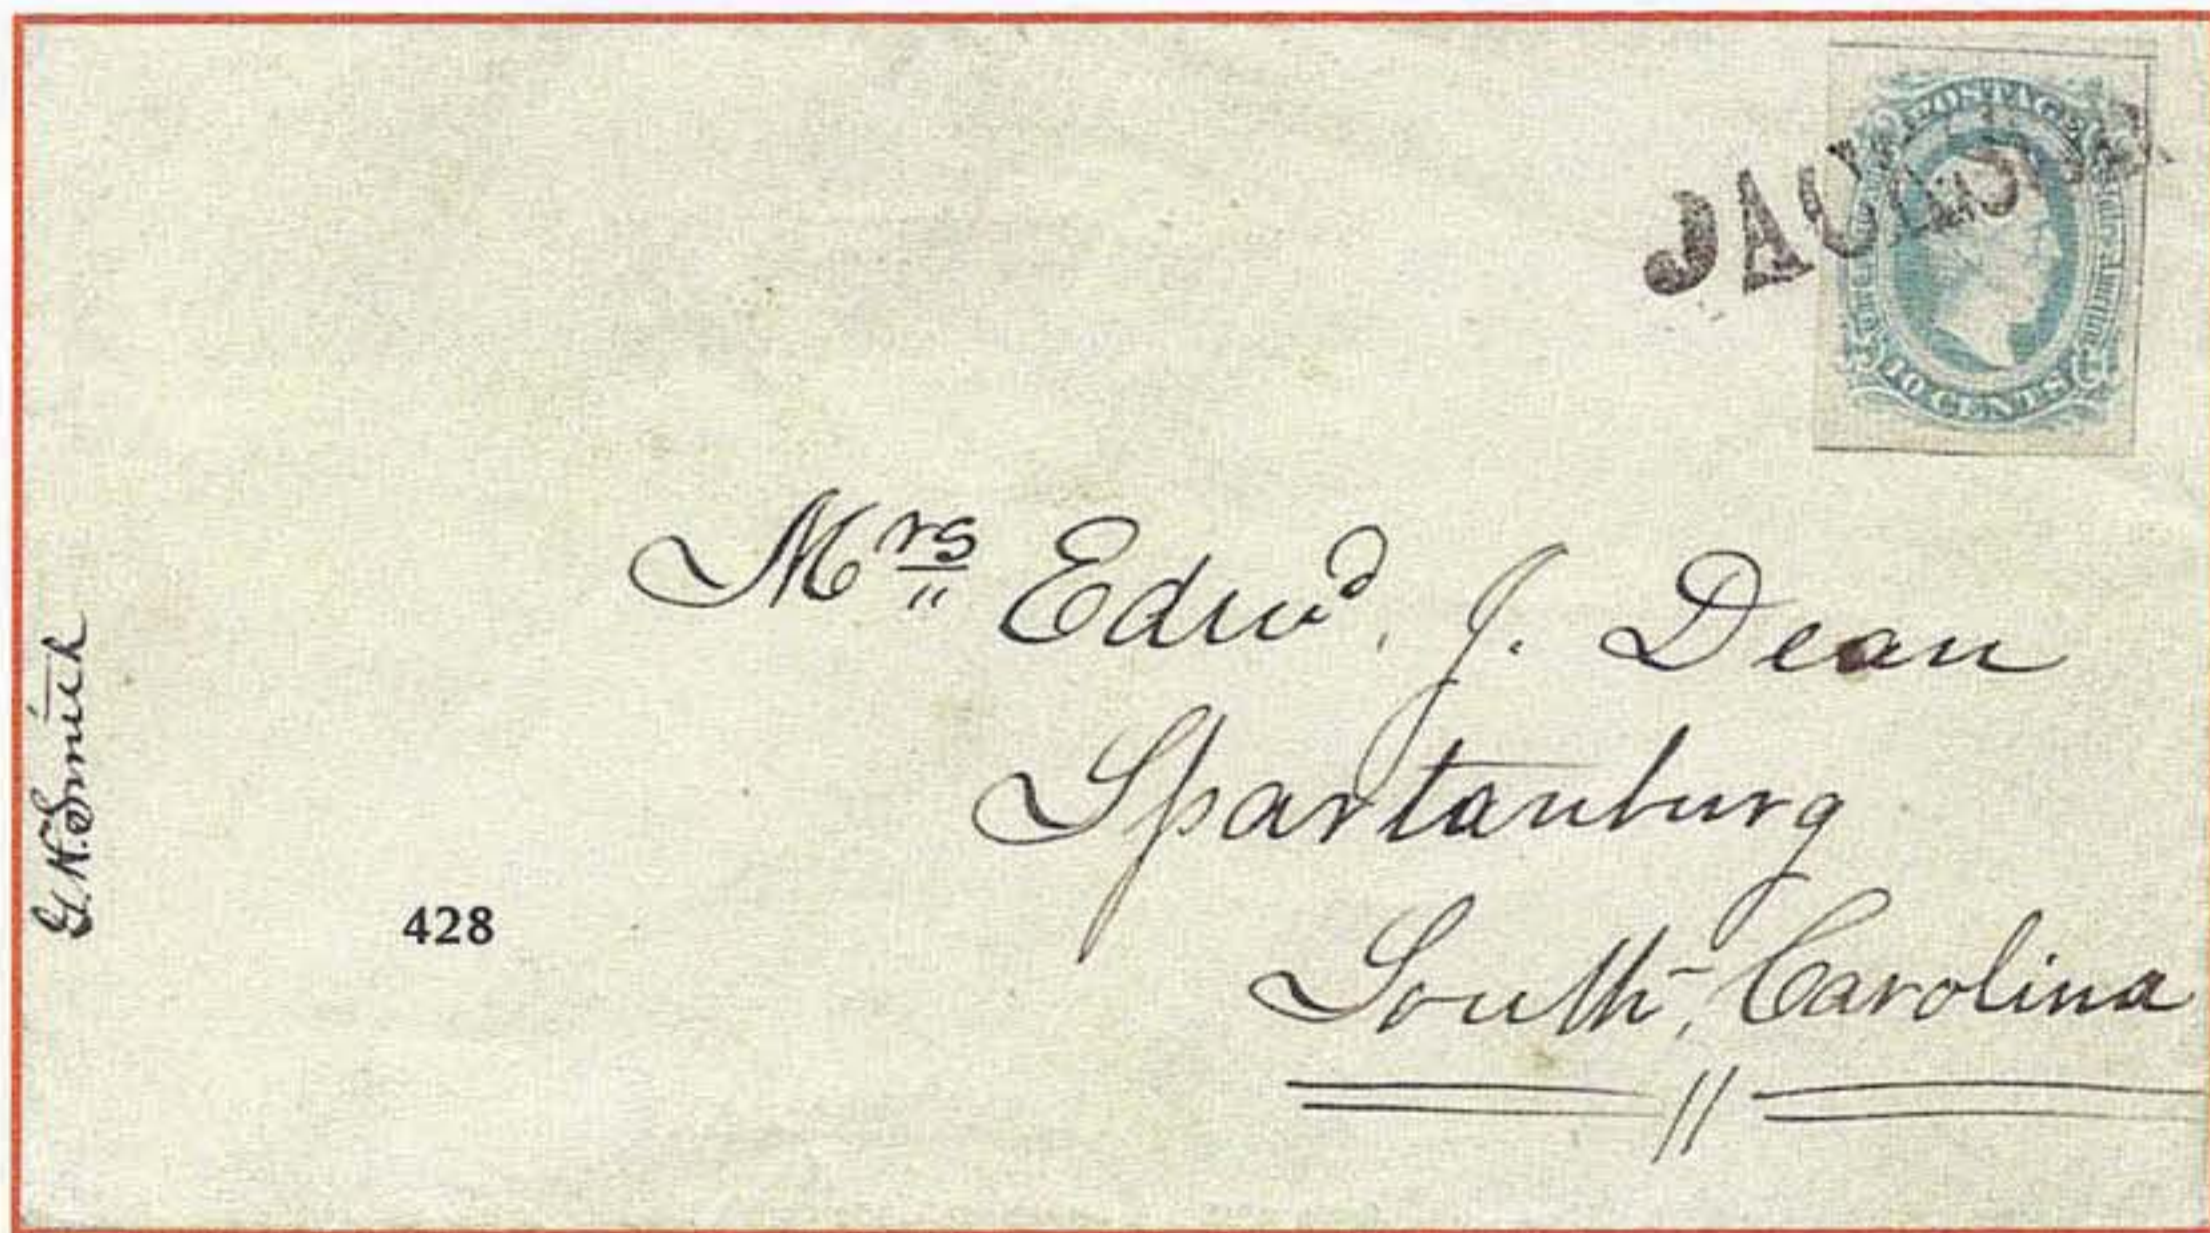 POSTAGE
10 CENTS
Mrs Edwd. J. Dean
Spartanburg
South Carolina
G. N. Smith
428